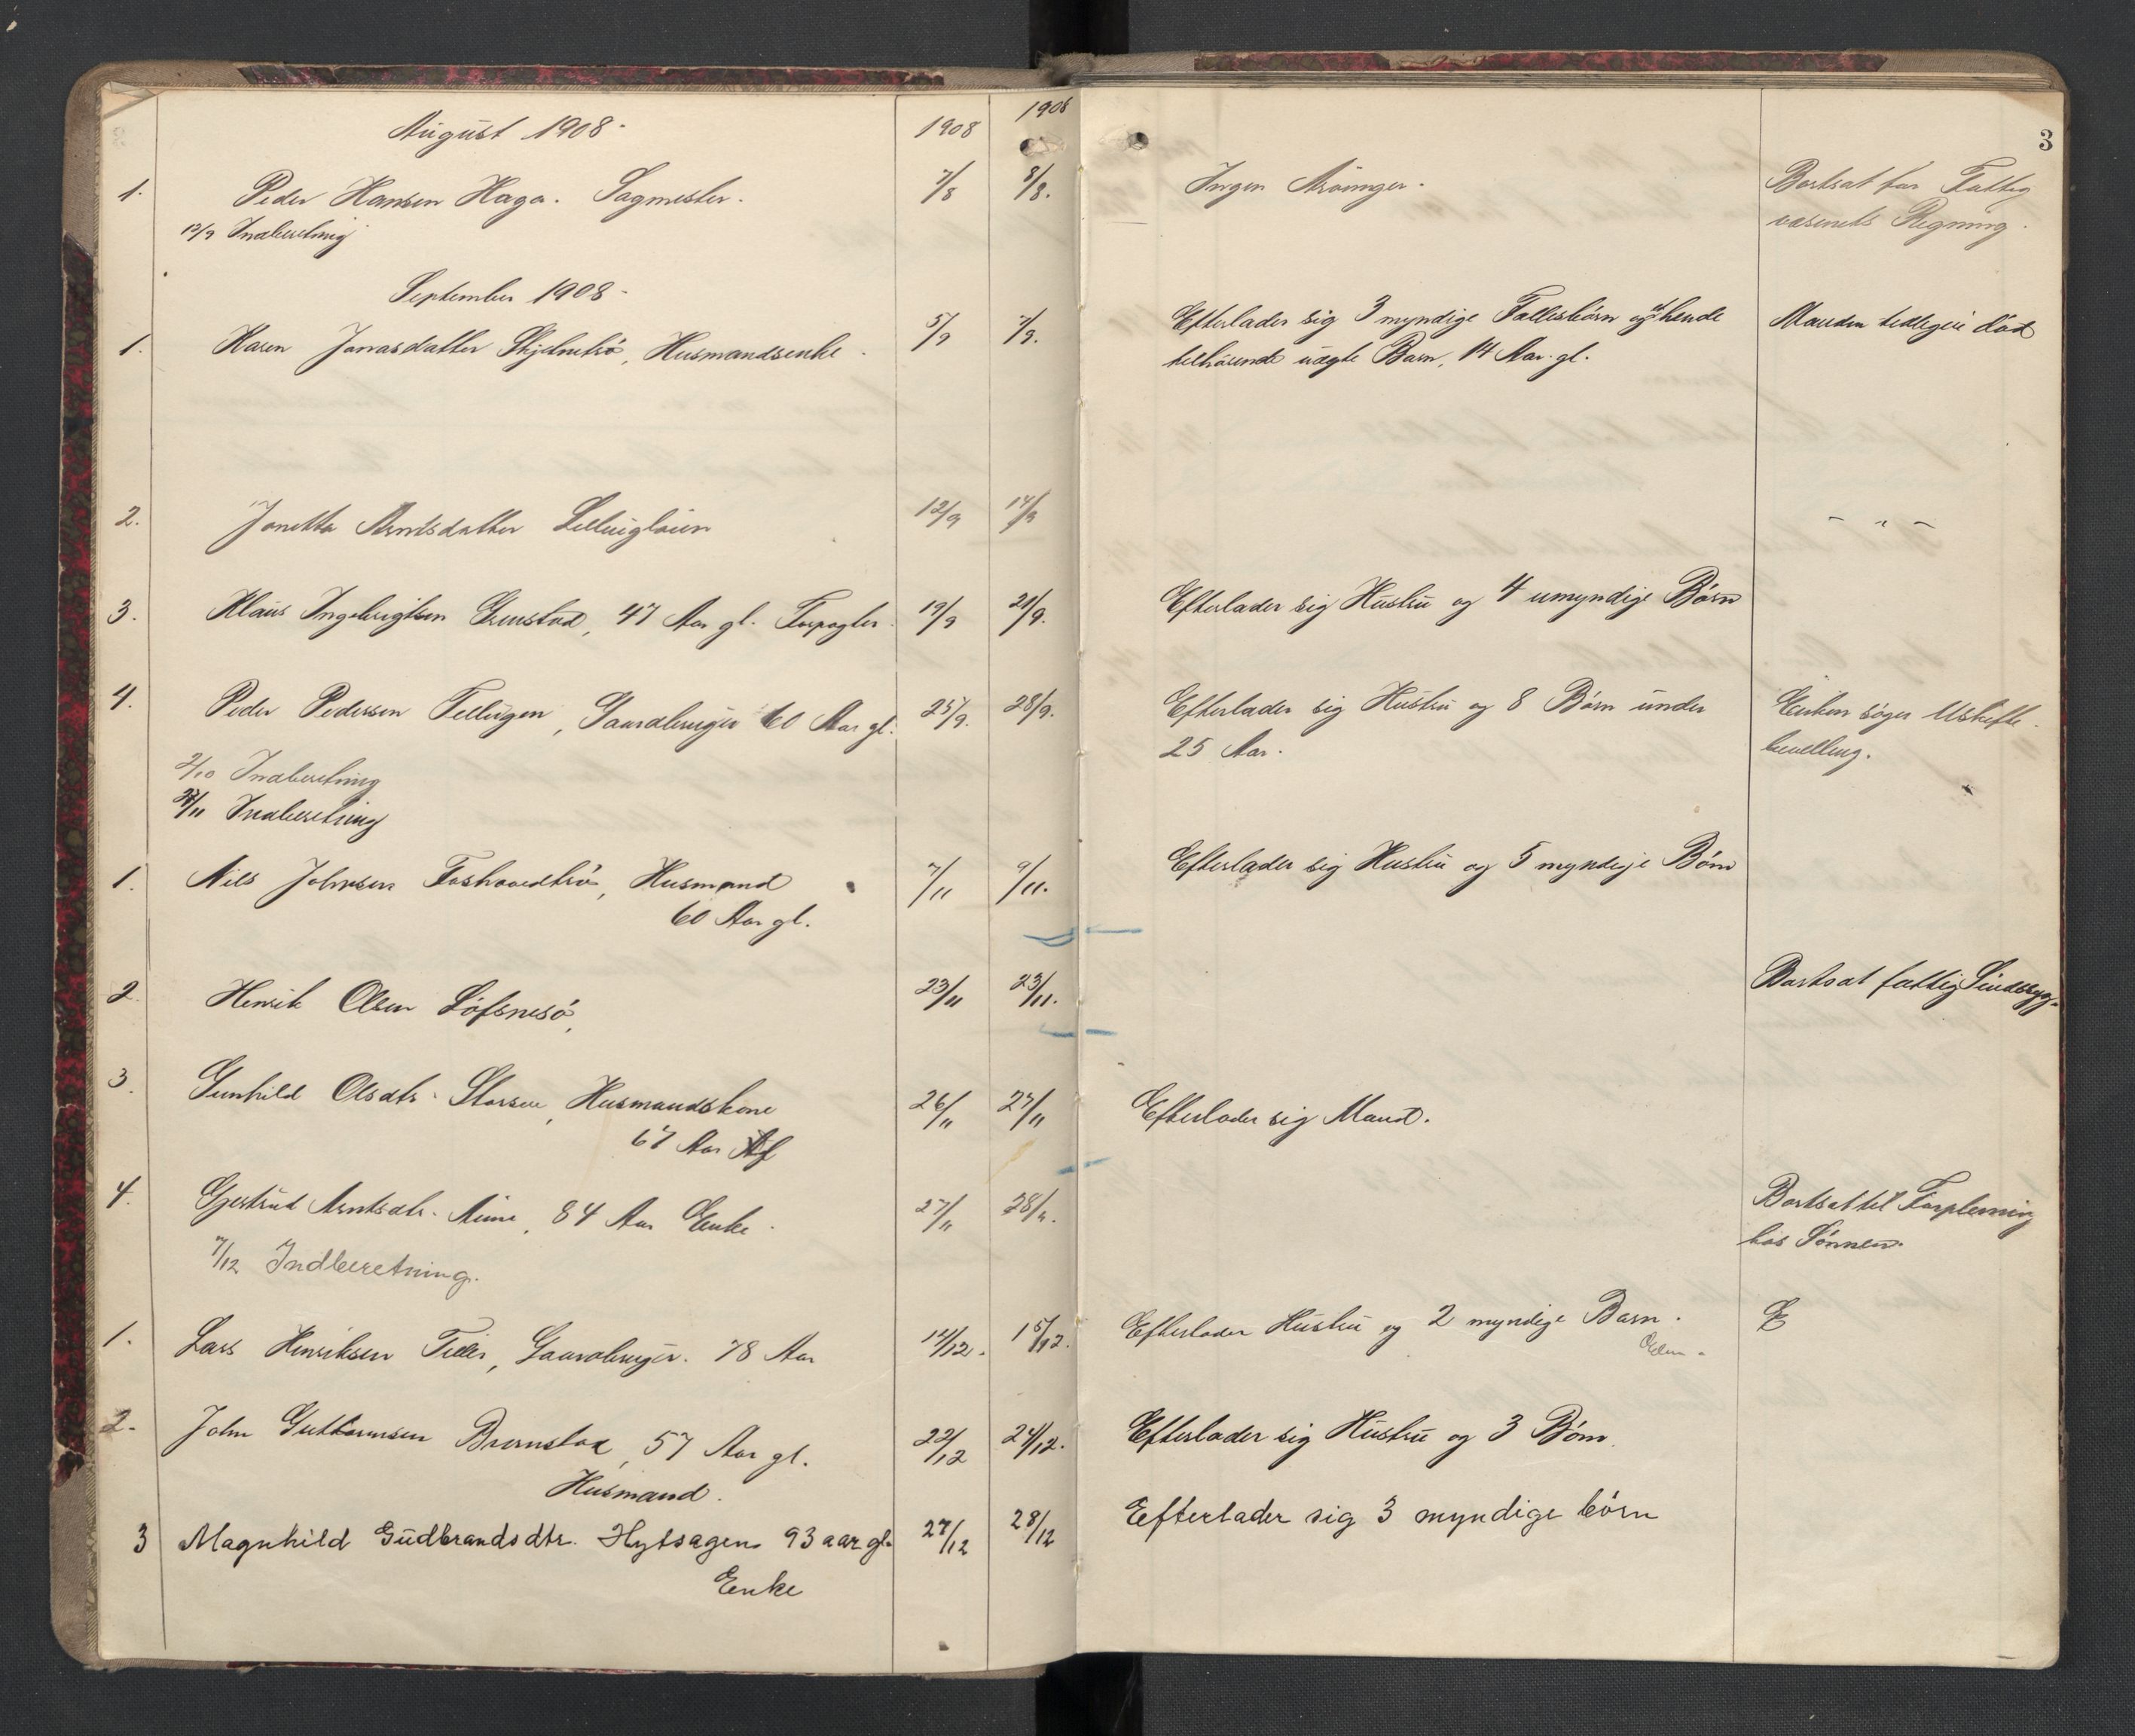 3
August 1908. 1908 1908
1. Peder Hansen Haga. Sagmester. 7/8 8/8. Ingen Arvinger. Bortsat for Fattig
12/9 Indberetning væsenets Regning.
September 1908.
1. Karen Jonasdatter, Husmandsenke. 5/9 7/9. Efterlader sig 3 myndige Fællesbørn og et hende Manden tidligere død
tilhørende uægte Barn, 14 Aar gl.
2. Jonetta Arntsdatter 12/9 14/9 - " -
3. Klaus Ingebrigtsen Grenstad, 47 Aar gl. Forpagter. 19/9 21/9. Efterlader sig Hustru og 4 umyndige Børn
4. Peder Pedersen Tellugen, Gaardbruger 60 Aar gl. 25/9. 28/9. Efterlader sig Hustru og 8 Børn under Enken søger Uskifte
25 Aar. bevilling.
2/10 Indberetning
/11 Indberetning
1. Nils Johnsen, Husmand 7/11 9/11. Efterlader sig Hustru og 5 myndige Børn
60 Aar gl.
2. Henrik Olsen Løfsnesø, 23/11 23/11. Bortsat fattig Sindssyg.
3. Gunhild Olsdtr. Storseu, Husmandskone 26/11 27/11 Efterlader sig Mand.
67 Aar
4. Gjertrud Arntsdtr. Aune, 84 Aar Enke. 27/11 28/11. Bortsat til Forplejning
hos Sønnen.
7/12 Indberetning.
1. Lars Henriksen Tiller, Gaardbruger. 78 Aar 14/12. 15/12. Efterlader Hustru og 2 myndige Barn. E
2. John Guttormsen Brenstad, 57 Aar gl. 22/12 24/12. Efterlader sig Hustru og 3 Børn.
Husmand.
3 Magnhild Gudbrandsdtr. Hytsagen 93 aar gl. 27/12 28/12 Eefterlader sig 3 myndige børn
Enke